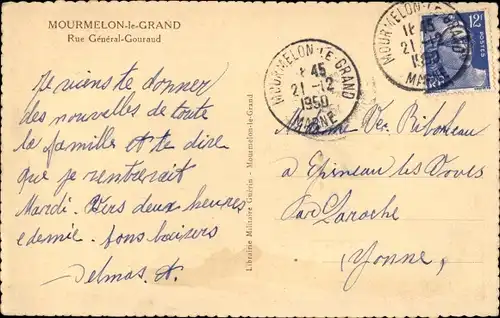 MOURMELON-le-GRAND
Rue Général-Gouraud
Je viens te donner
des nouvelles de toute
la famille et te dire
que je rentrerait
Mardi. Vers deux heures
edemie. bons baisers
Delmas. A.
Librairie Militaire Guérin - Mourmelon-le-Grand
MOURMELON-LE-GRAND
45
21-12
1950
MARNE
MOURMELON-LE-GRAND
21-12
MARNE
12
POSTES
Madame Ver
a Epineau les Voves
Par Laroche
(Yonne)